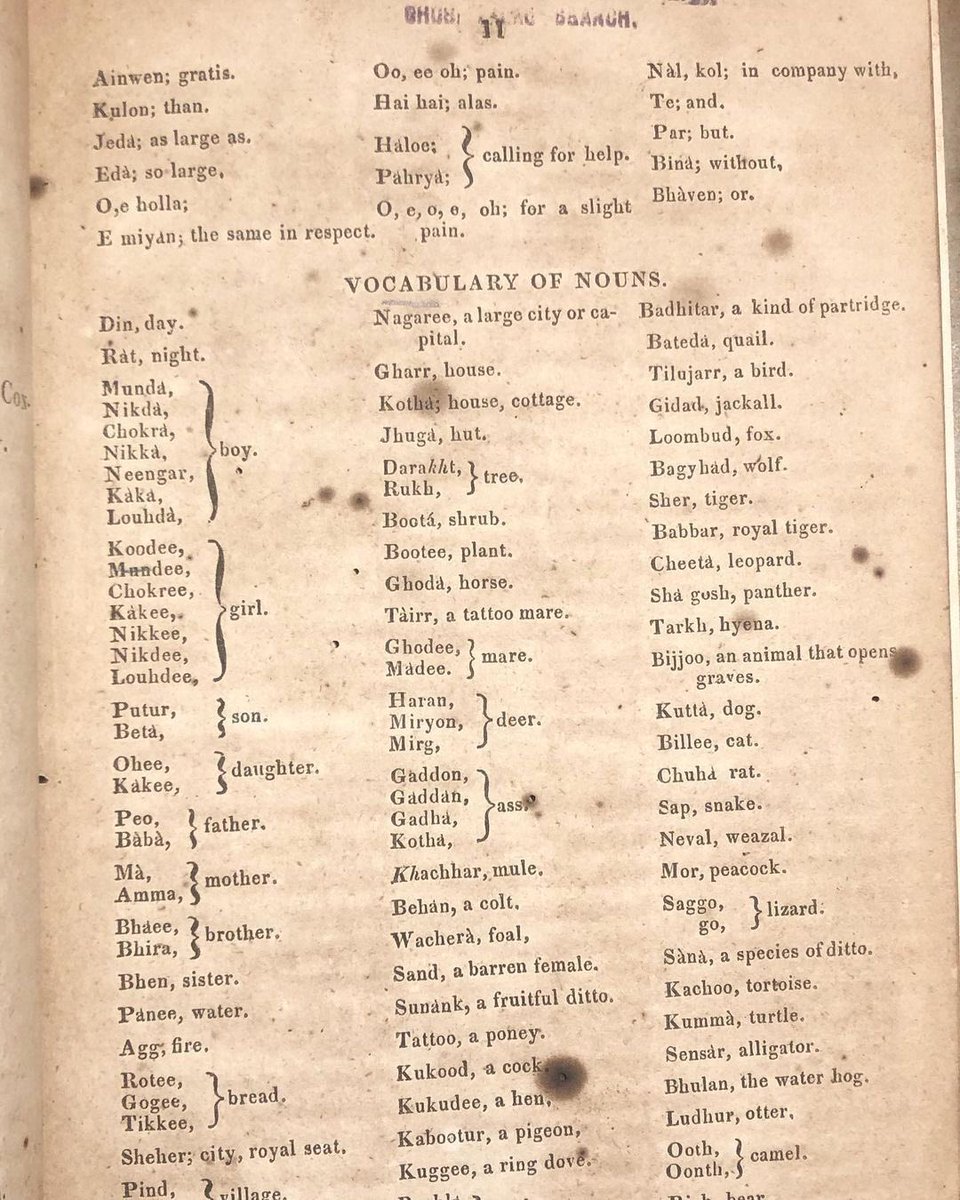 11
Ainwen; gratis.
Kulon; than.
Jedà; as large as.
Edà; so large,
O,e holla;
E miyàn; the same in respect.
Oo, ee oh; pain.
Hai hai; alas.
Hàloe;
Pàhryà; } calling for help.
O, e, o, e, oh; for a slight
pain.
Nàl, kol; in company with,
Te; and.
Par; but.
Binà; without,
Bhàven; or.
VOCABULARY OF NOUNS.
Din, day.
Ràt, night.
Mundà,
Nikdà,
Chokrà,
Nikkà, } boy.
Neengar,
Kàkà,
Louhdà,
Koodee,
Mundee,
Chokree,
Kàkee, } girl.
Nikkee,
Nikdee,
Louhdee,
Putur,
Betà, } son.
Ohee,
Kàkee, } daughter.
Peo,
Bàbà, } father.
Mà,
Amma, } mother.
Bhàee,
Bhira, } brother.
Bhen, sister.
Pànee, water.
Agg, fire.
Rotee,
Gogee, } bread.
Tikkee,
Sheher; city, royal seat.
Pind, } village.
Nagaree, a large city or ca-
pital.
Gharr, house.
Kothà; house, cottage.
Jhugà, hut.
Darakht,
Rukh, } tree.
Bootá, shrub.
Bootee, plant.
Ghodà, horse.
Tàirr, a tattoo mare.
Ghodee,
Màdee. } mare.
Haran,
Miryon, } deer.
Mirg,
Gàddon,
Gàddàn, } ass.
Gadhà,
Kothà,
Khachhar, mule.
Behàn, a colt.
Wacherà, foal,
Sand, a barren female.
Sunànk, a fruitful ditto.
Tattoo, a poney.
Kukood, a cock.
Kukudee, a hen,
Kabootur, a pigeon,
Kuggee, a ring dove.
Badhitar, a kind of partridge.
Batedà, quail.
Tilujarr, a bird.
Gidad, jackall.
Loombud, fox.
Bagyhàd, wolf.
Sher, tiger.
Babbar, royal tiger.
Cheetà, leopard.
Shà gosh, panther.
Tarkh, hyena.
Bijjoo, an animal that opens
graves.
Kuttà, dog.
Billee, cat.
Chuhà rat.
Sap, snake.
Neval, weazal.
Mor, peacock.
Saggo,
go, } lizard.
Sànà, a species of ditto.
Kachoo, tortoise.
Kummà, turtle.
Sensàr, alligator.
Bhulan, the water hog.
Ludhur, otter,
Ooth,
Oonth, } camel.